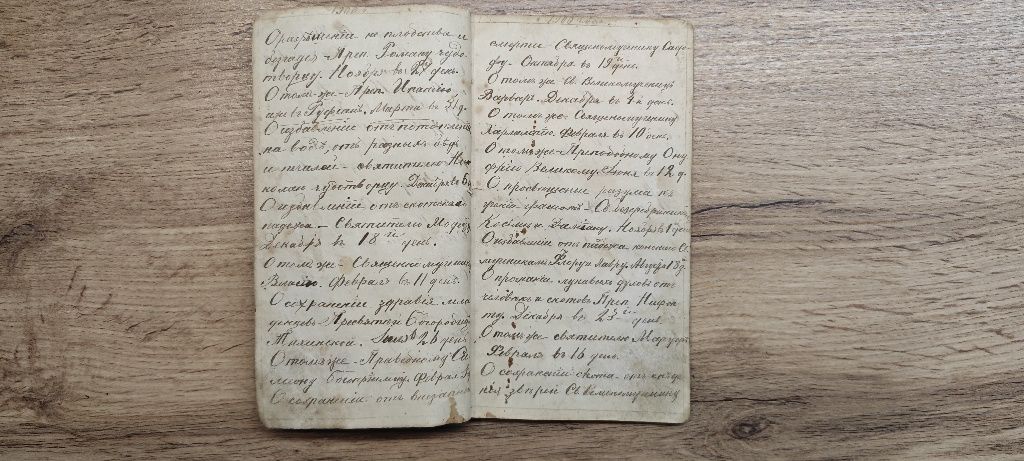 О разрешении не плодства и
безчадия - Преп. Роману чудо-
творцу. Ноября въ 27 день.
О томъ же - Преп. Ипатию
иже въ Руфиенѣ. Марта въ 31 д.
О избавлении отъ потопления
на водѣ, отъ разныхъ бѣдъ
и печалей - святителю Ни-
колаю чудотворцу. Декабря въ 6
О избавлении отъ скотского
падежа - Святителю Модесту
Декабря въ 18 й день.
О томъ же - Священномученику
Власию. Февраля въ 11 день.
О сохранении здравия мла-
денцевъ - Пресвятѣй Богородицѣ
Тихвинской. 26 день
О томъ же - Праведному Си-
меону Богоприимцу. Февраля
О сохранении отъ внезапной
смерти - Священомученику Садо-
фу - Октября въ 19 й день.
О томъ же Св. Великомученицѣ
Варварѣ. Декабря въ 4 й день.
О томъ же - Священомученику
Харлампию. Февраля въ 10 день.
О томъ же - Преподобному Ону-
фрию Великому. Июня въ 12 д.
О просвещение разума къ
учению грамотѣ - Св. безсребреникамъ
Косьмѣ и Дамиану. Ноября 1 день
О избавлении отъ падежа конского Св.
мученикамъ Флору и Лавру. Августа 18 д.
О прогнании лукавыхъ духовъ отъ
человѣкъ и скотовъ Преп. Нифон-
ту. Декабря въ 23 й день.
О томъ же - святителю Маруфу
Февраля въ 16 день.
О сохранении скота отъ
звѣрей Св. Великомученику